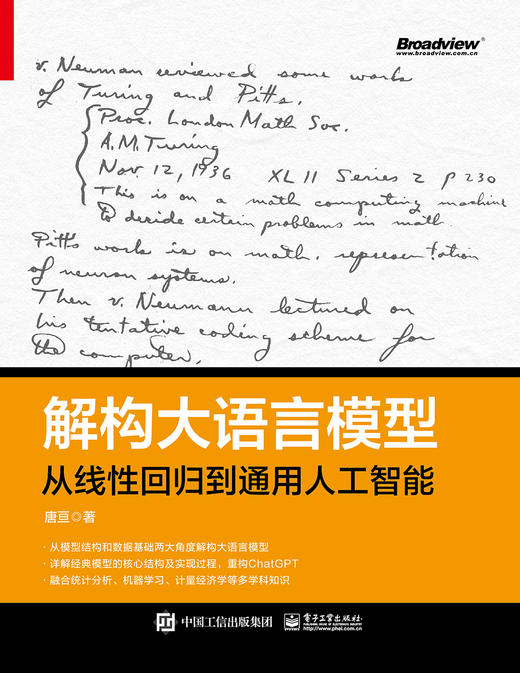 Broadview®
www.broadview.com.cn
v. Neuman reviewed some works
of Turing and Pitts.
Proc. London Math Soc.
A.M. Turing
Nov. 12, 1936 XL II Series 2 p 230
This is on a math computing machine
to decide certain problems in math.
Pitts work is on math. representation
of neuron systems.
Then v. Neumann lectured on
his tentative coding scheme for
the computer.
解构大语言模型
从线性回归到通用人工智能
唐亘◎著
· 从模型结构和数据基础两大角度解构大语言模型
· 详解经典模型的核心结构及实现过程，重构ChatGPT
· 融合统计分析、机器学习、计量经济学等多学科知识
中国工信出版集团
电子工业出版社
PUBLISHING HOUSE OF ELECTRONICS INDUSTRY
http://www.phei.com.cn